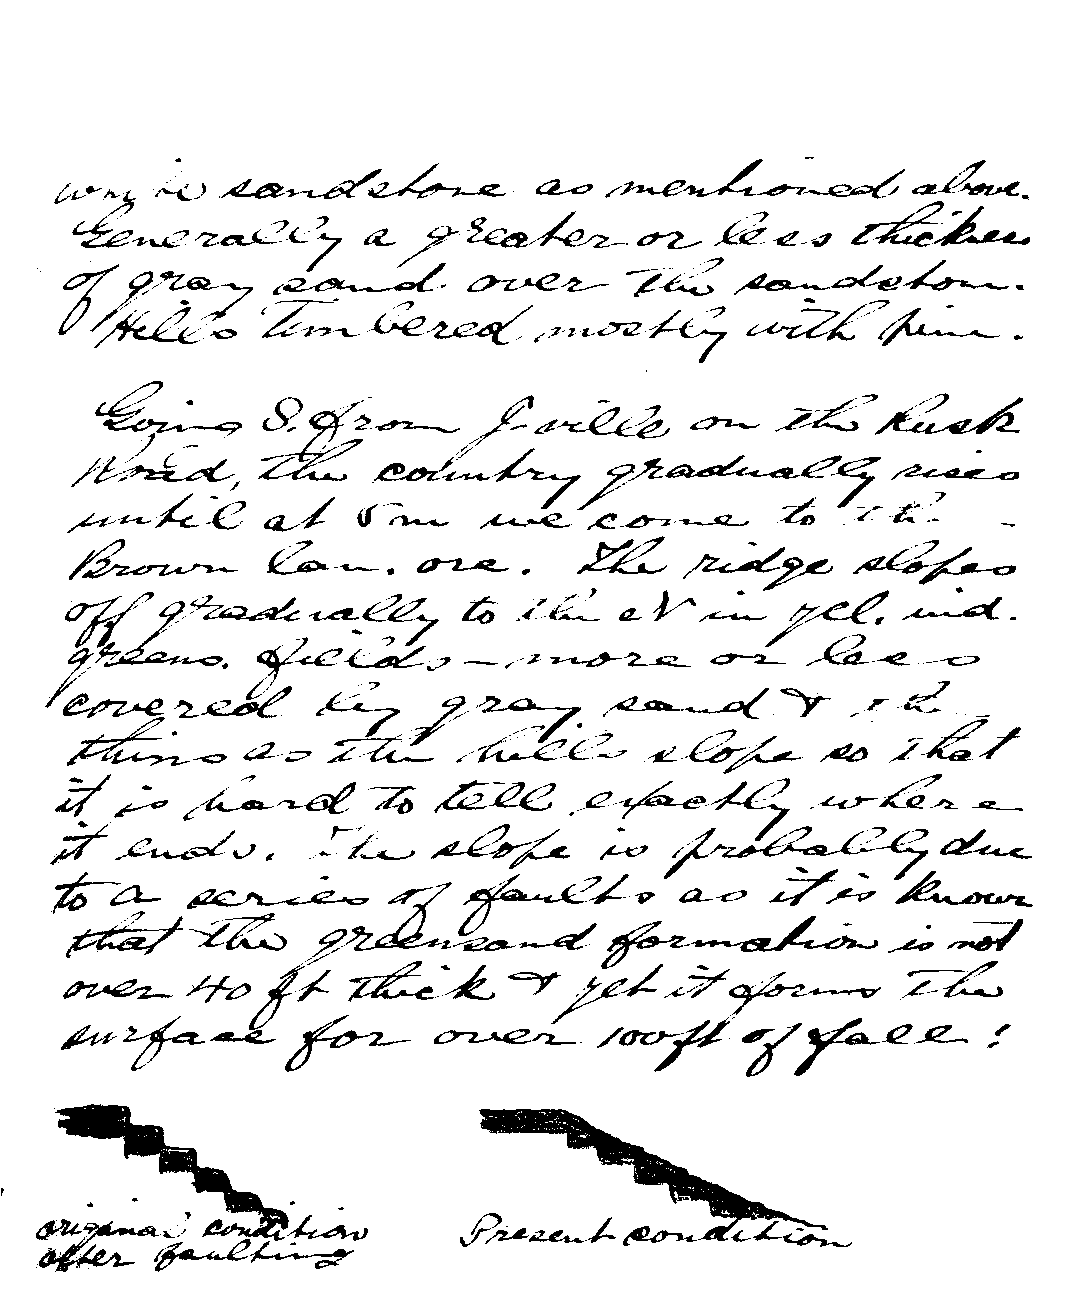 white sandstone as mentioned above.
Generally a greater or less thickness
of gray sand over the sandstone.
Hills Timbered mostly with pine.
Going S. from J-ville on the Rusk
Road, the country gradually rises
until at 5 m we come to the
Brown lam. ore. The ridge slopes
off gradually to the N in yel. ind.
greens. fields - more or less
covered by gray sand & the
things as the hills slope so that
it is hard to tell exactly where
it ends. The slope is probably due
to a series of faults as it is known
that the greensand formation is not
over 40 ft thick & yet it forms the
surface for over 100 ft of fall!
original condition
after faulting
Present condition